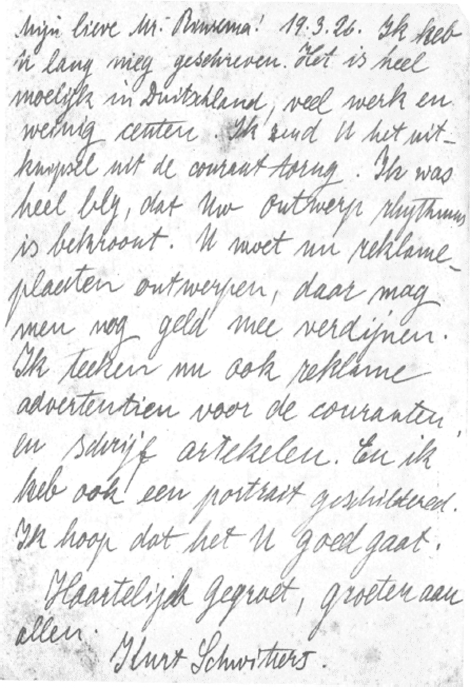 Mijn lieve Mr. Buurema! 19.3.26. Ik heb
U lang nieg geschreven. Het is heel
moelijk in Duitschland, veel werk en
weinig centen. Ik zend U het uit-
knipsel uit de courant torug. Ik was
heel bly, dat Uw ontwerp rhythmus
is bekroont. U moet nu reklame-
plaaten ontwerpen, daar mag
men nog geld mee verdijnen.
Ik teeken nu ook reklame
advertentien voor de couranten
en schrijf artekelen. En ik
heb ook een portrait geschildered.
Ik hoop dat het U goed gaat.
Haartelijk gegroet, groeten aan
allen.
Kurt Schwitters.